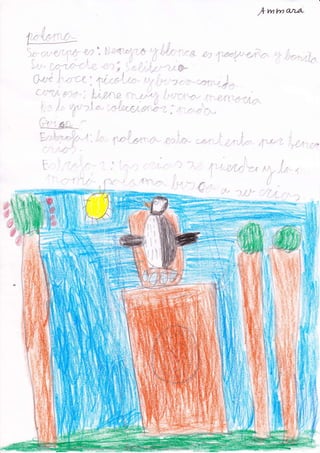 Ammara
paloma
Su cuerpo es: Negro y blanca es pequeña y bonita
Su caracter es: solitario
Qué hace: picotea y busca comida
curioso: tiene muy buena memoria
Le gusta coleccionar: nada
Estrofa 1: la paloma esta contenta por tener
crias.
Estrofa 2: las crias se pierden y la
mamá paloma busca a su crias